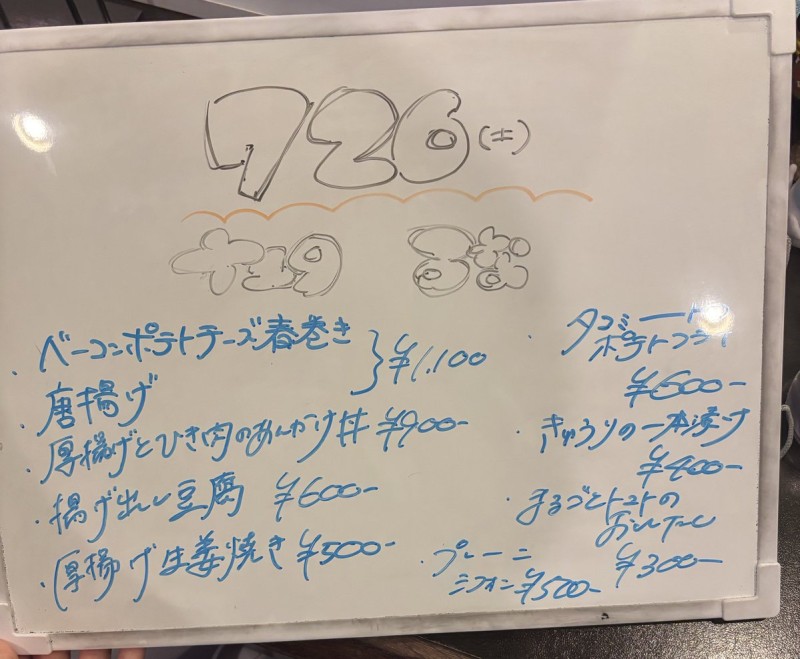 726(土)
ベーコンポテトチーズ春巻き
唐揚げ
}¥1,100
・厚揚げとひき肉のあんかけ丼 ¥900-
・揚げ出し豆腐 ¥600-
・厚揚げ生姜焼き ¥500-
・タコミート
ポテトフライ
¥600-
・きゅうりの一本漬け
¥400-
・まるごとトマトの
おひたし
¥300-
・プレーン
シフォン ¥500-